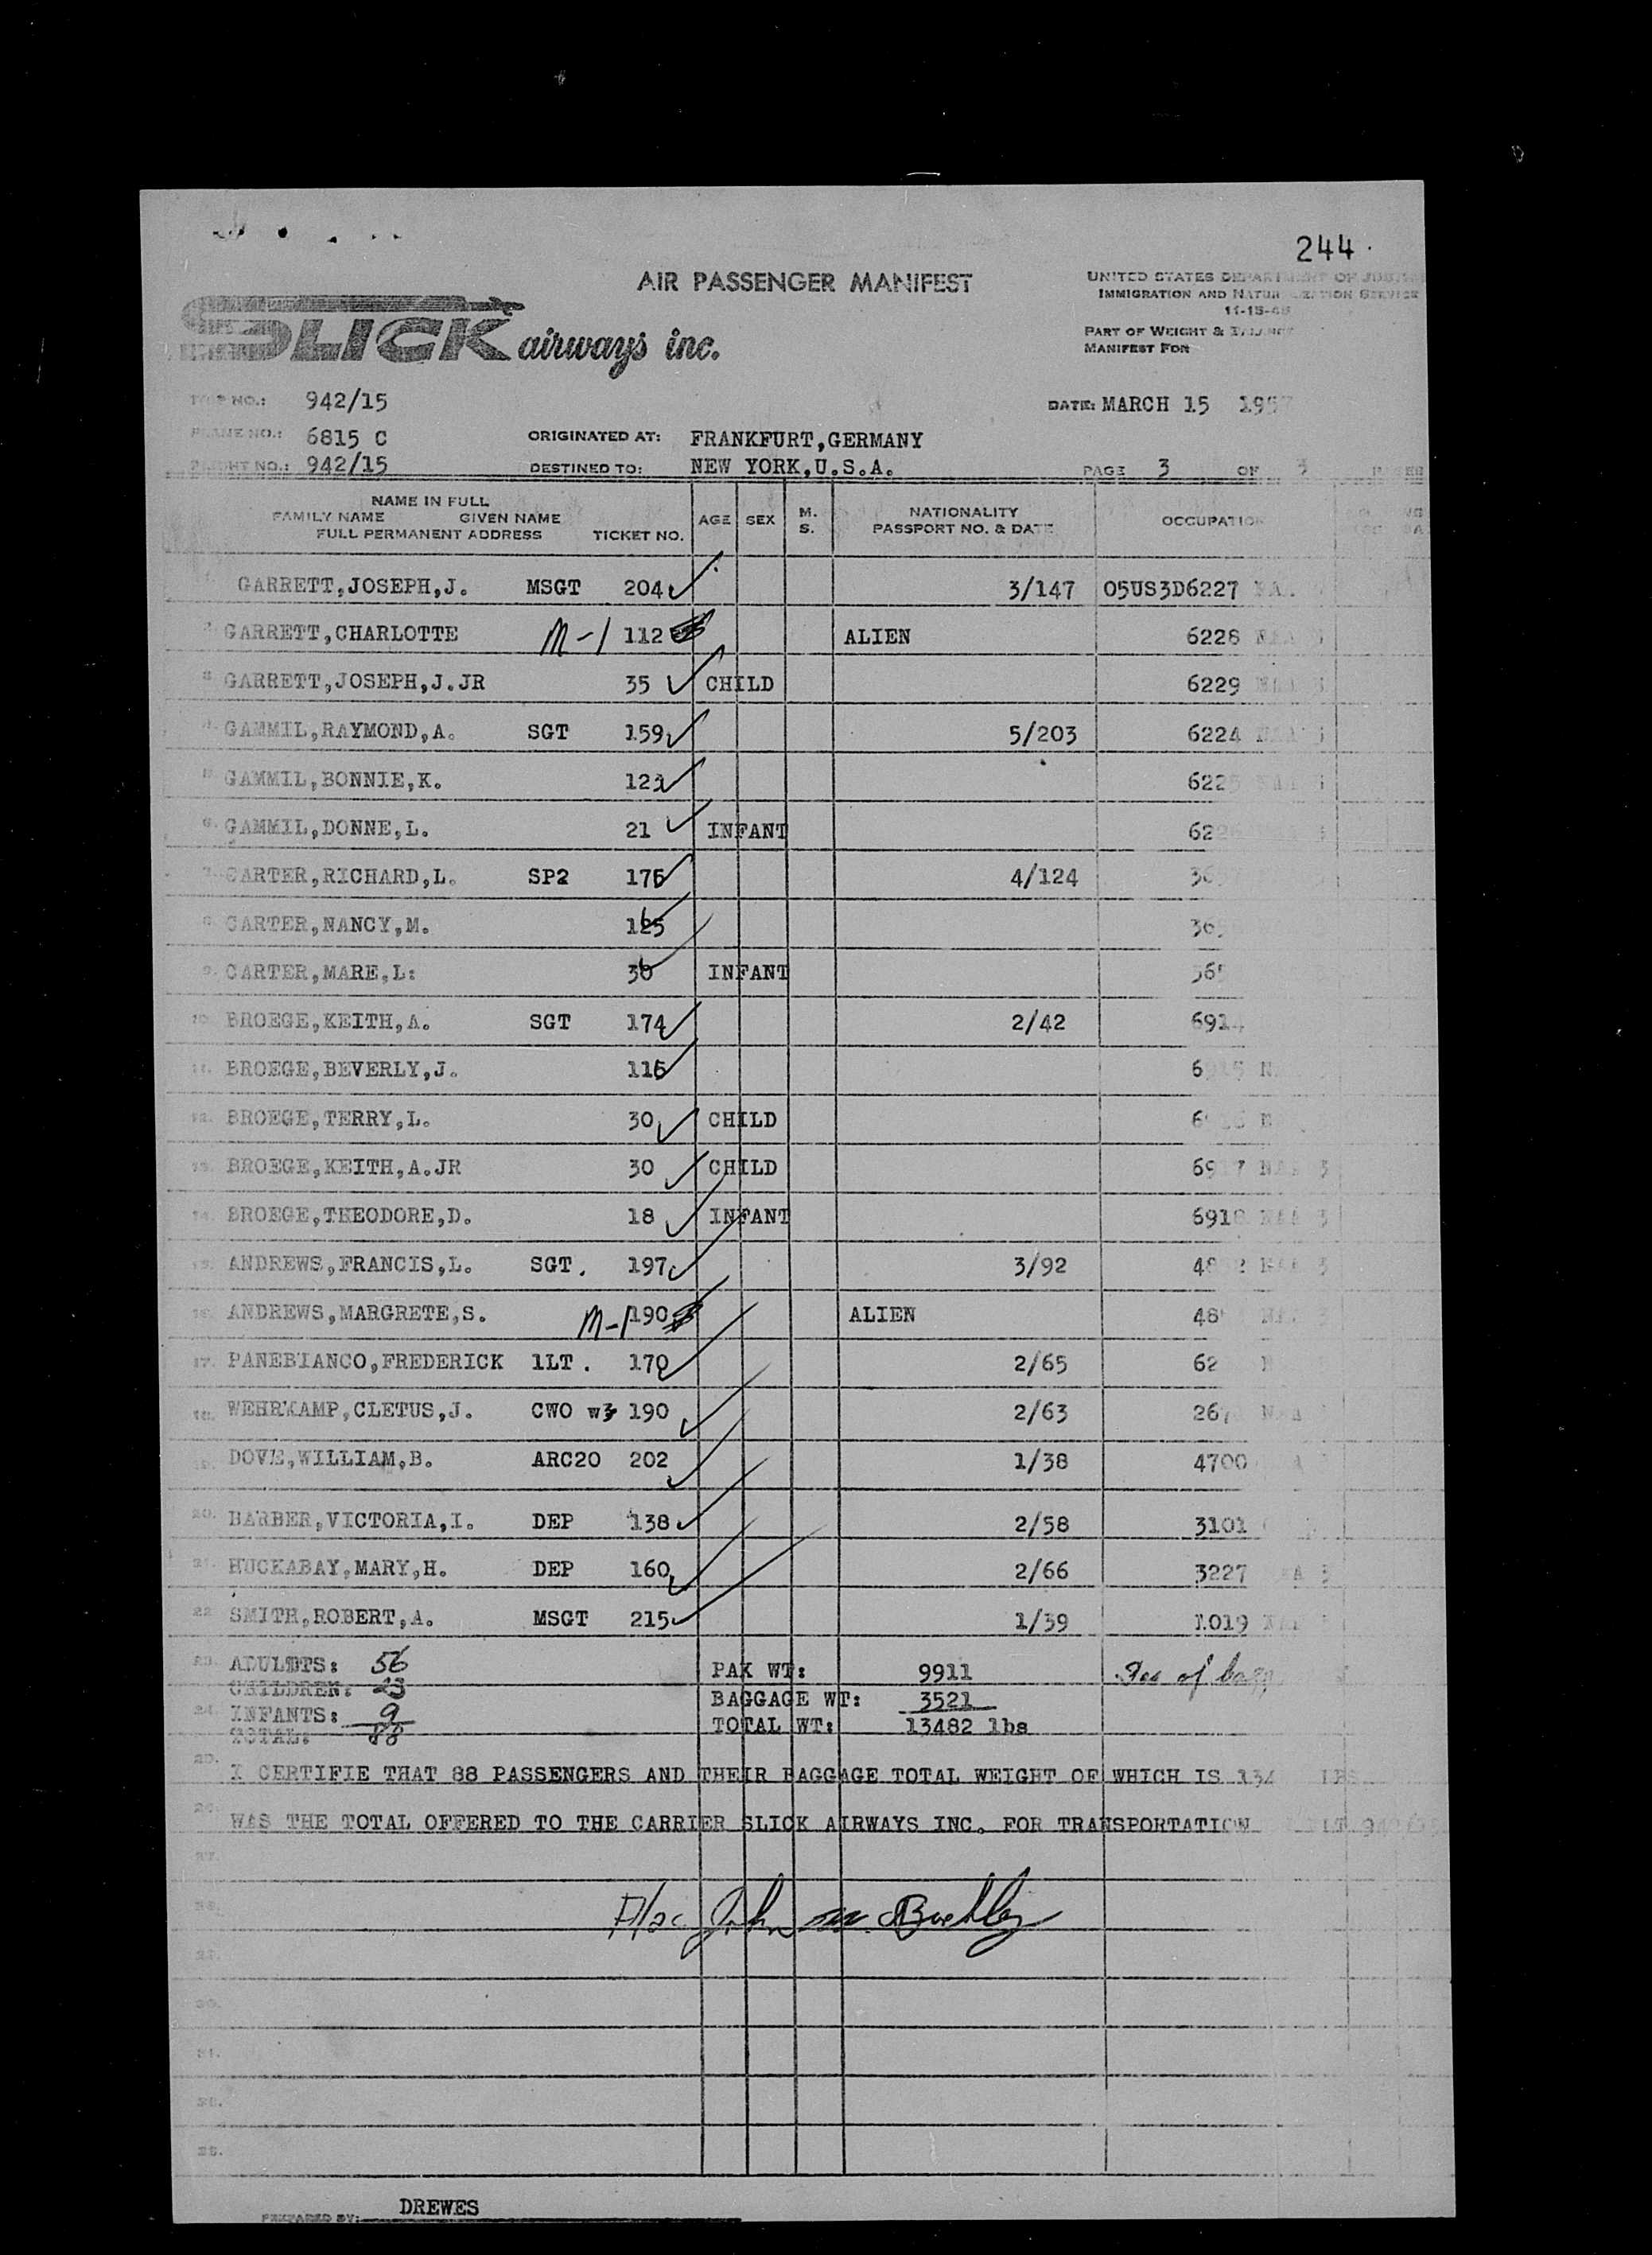 244
AIR PASSENGER MANIFEST
UNITED STATES DEPARTMENT OF JUSTICE
IMMIGRATION AND NATURALIZATION SERVICE
PART OF WEIGHT & BALANCE
MANIFEST FOR
SLICK airways inc.
942/15
DATE: MARCH 15 1957
PLANE NO.: 6815 C
ORIGINATED AT: FRANKFURT,GERMANY
FLIGHT NO.: 942/15
DESTINED TO: NEW YORK,U.S.A.
PAGE 3 OF 3
NAME IN FULL
FAMILY NAME GIVEN NAME
FULL PERMANENT ADDRESS TICKET NO. AGE SEX M. S. NATIONALITY PASSPORT NO. & DATE OCCUPATION
GARRETT,JOSEPH,J. MSGT 204 3/147 05US3D6227
GARRETT,CHARLOTTE M-1 112 ALIEN 6228
GARRETT,JOSEPH,J.JR 35 CHILD 6229
GAMMIL,RAYMOND,A. SGT 159 5/203 6224
GAMMIL,BONNIE,K.
GAMMIL,DONNE,L. 21 INFANT
CARTER,RICHARD,L. SP2 4/124
CARTER,NANCY,M. 125
CARTER,MARE,L: 30 INFANT
10. BROEGE,KEITH,A. SGT 174 2/42
11. BROEGE,BEVERLY,J.
12. BROEGE,TERRY,L. 30 CHILD
13. BROEGE,KEITH,A.JR 30 CHILD
14. BROEGE,THEODORE,D. 18 INFANT 6918
15. ANDREWS,FRANCIS,L. SGT. 197 3/92
16. ANDREWS,MARGRETE,S. M-1 190 ALIEN
17. PANEBIANCO,FREDERICK 1LT. 170 2/65
18. WEHRKAMP,CLETUS,J. CWO w3 190 2/63
DOVE,WILLIAM,B. ARC20 202 1/38 4700
20. BARBER,VICTORIA,I. DEP 138 2/58 3101
21. HUCKABAY,MARY,H. DEP 160 2/66 3227
22 SMITH,ROBERT,A. MSGT 215 1/39
23. ADULDTS: 56 PAX WT: 9911
CHILDREN: 23
BAGGAGE WT: 3521
24. INFANTS: 9
TOTAL WT: 13482 lbs
TOTAL: 88
I CERTIFIE THAT 88 PASSENGERS AND THEIR BAGGAGE TOTAL WEIGHT OF WHICH IS
WAS THE TOTAL OFFERED TO THE CARRIER SLICK AIRWAYS INC. FOR TRANSPORTATION
PREPARED BY: DREWES